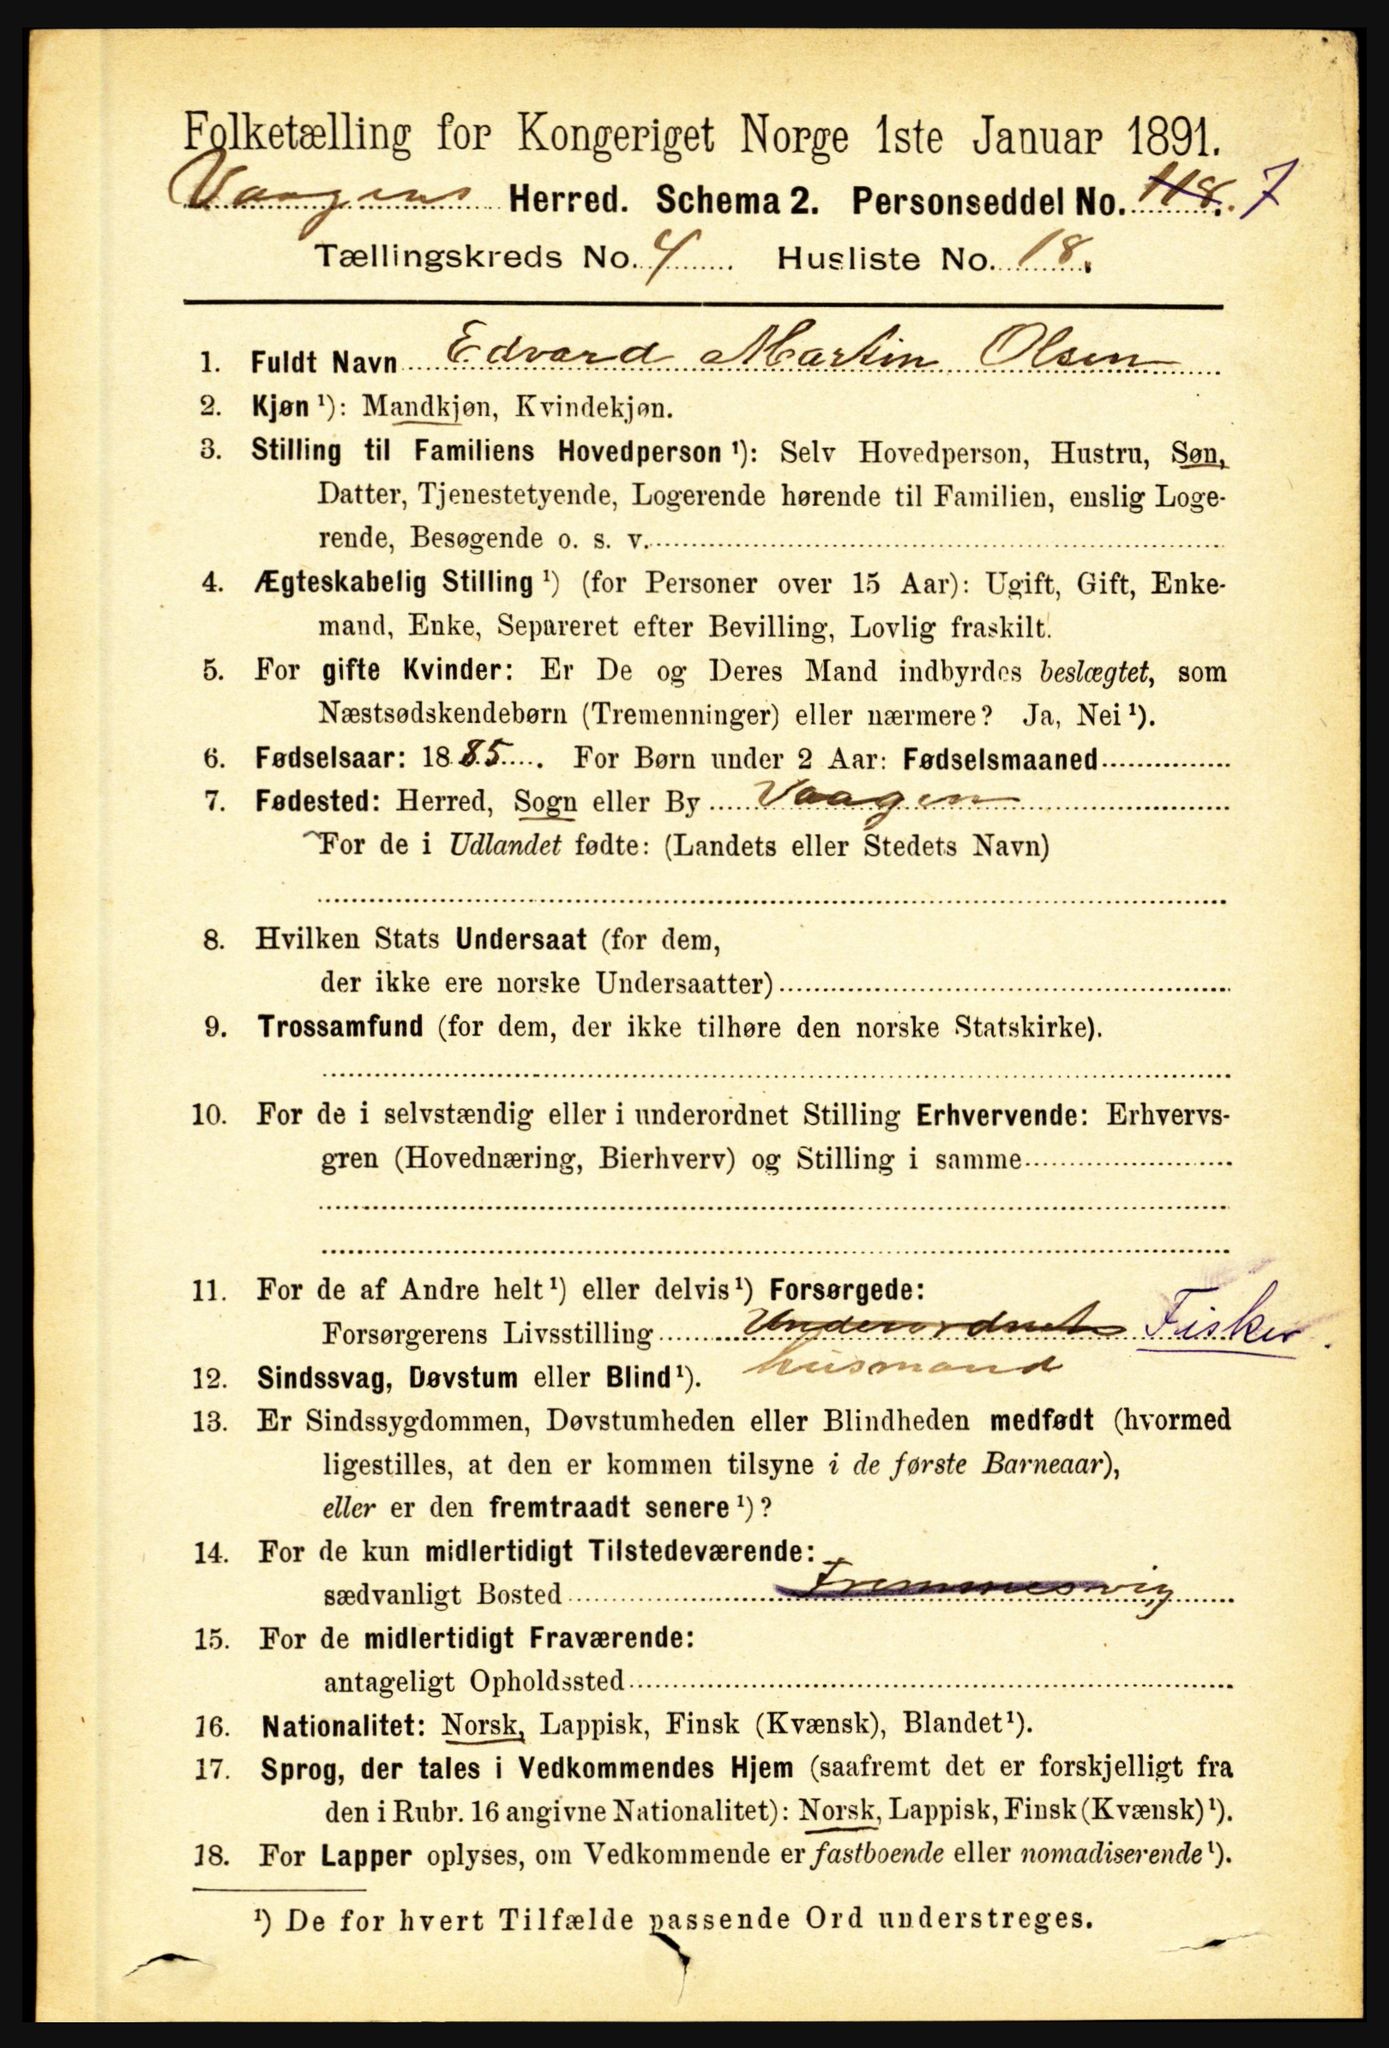 Folketælling for Kongeriget Norge 1ste Januar 1891.
Vaagens Herred. Schema 2. Personseddel No. 118. 7
Tællingskreds No. 4 Husliste No. 18.
1. Fuldt Navn Edvard Martin Olsen
2. Kjøn ¹): Mandkjøn, Kvindekjøn.
3. Stilling til Familiens Hovedperson ¹): Selv Hovedperson, Hustru, Søn,
Datter, Tjenestetyende, Logerende hørende til Familien, enslig Loge-
rende, Besøgende o. s. v.
4. Ægteskabelig Stilling ¹) (for Personer over 15 Aar): Ugift, Gift, Enke-
mand, Enke, Separeret efter Bevilling, Lovlig fraskilt.
5. For gifte Kvinder: Er De og Deres Mand indbyrdes beslægtet, som
Næstsødskendebørn (Tremenninger) eller nærmere? Ja, Nei ¹).
6. Fødselsaar: 1885. For Børn under 2 Aar: Fødselsmaaned
7. Fødested: Herred, Sogn eller By Vaagen
For de i Udlandet fødte: (Landets eller Stedets Navn)
8. Hvilken Stats Undersaat (for dem,
der ikke ere norske Undersaatter)
9. Trossamfund (for dem, der ikke tilhøre den norske Statskirke).
10. For de i selvstændig eller i underordnet Stilling Erhvervende: Erhvervs-
gren (Hovednæring, Bierhverv) og Stilling i samme
11. For de af Andre helt ¹) eller delvis ¹) Forsørgede:
Forsørgerens Livsstilling Underordnet Fisker.
husmand
12. Sindssvag, Døvstum eller Blind ¹).
13. Er Sindssygdommen, Døvstumheden eller Blindheden medfødt (hvormed
ligestilles, at den er kommen tilsyne i de første Barneaar),
eller er den fremtraadt senere ¹)?
14. For de kun midlertidigt Tilstedeværende:
sædvanligt Bosted Fremmesvig
15. For de midlertidigt Fraværende:
antageligt Opholdssted
16. Nationalitet: Norsk, Lappisk, Finsk (Kvænsk), Blandet ¹).
17. Sprog, der tales i Vedkommendes Hjem (saafremt det er forskjelligt fra
den i Rubr. 16 angivne Nationalitet): Norsk, Lappisk, Finsk (Kvænsk) ¹).
18. For Lapper oplyses, om Vedkommende er fastboende eller nomadiserende ¹).
¹) De for hvert Tilfælde passende Ord understreges.